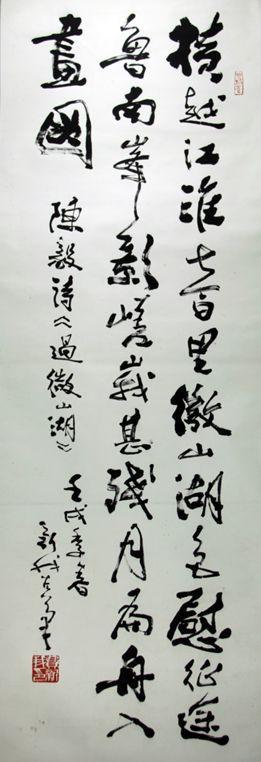 橫越江淮七百里微山湖色慰征途
魯南峯影嵯峩甚殘月扁舟入
畫圖
陳毅詩《過微山湖》
壬戌季春
新我左筆